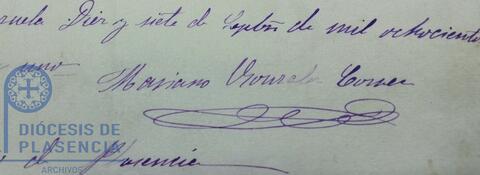 ruela Diez y siete de Septbre de mil ochociento
uno
Mariano
DIÓCESIS DE
PLASENCIA
ARCHIVOS
de Plasencia